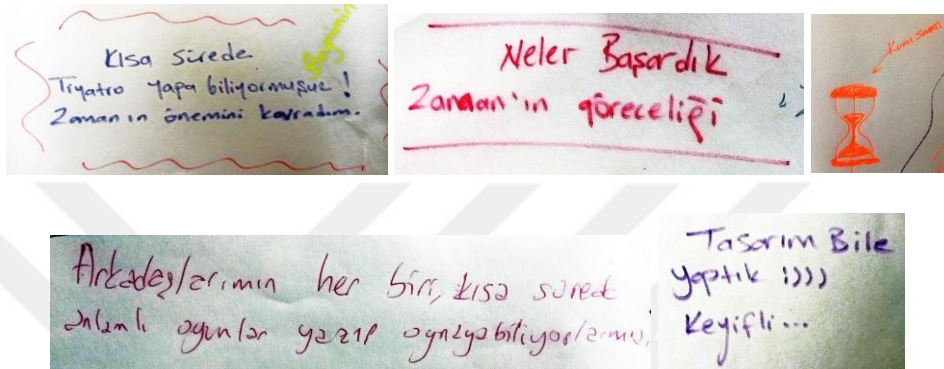 Kısa sürede
Tiyatro yapa biliyormuşuz !
Zamanın önemini kavradım.
Neler Başardık
Zaman'ın göreceliği
Kum saati
Arkadaşlarımın her biri, kısa sürede
anlamlı oyunlar yazıp oynayabiliyorlarmış.
Tasarım Bile
yaptık :))))
Keyifli...